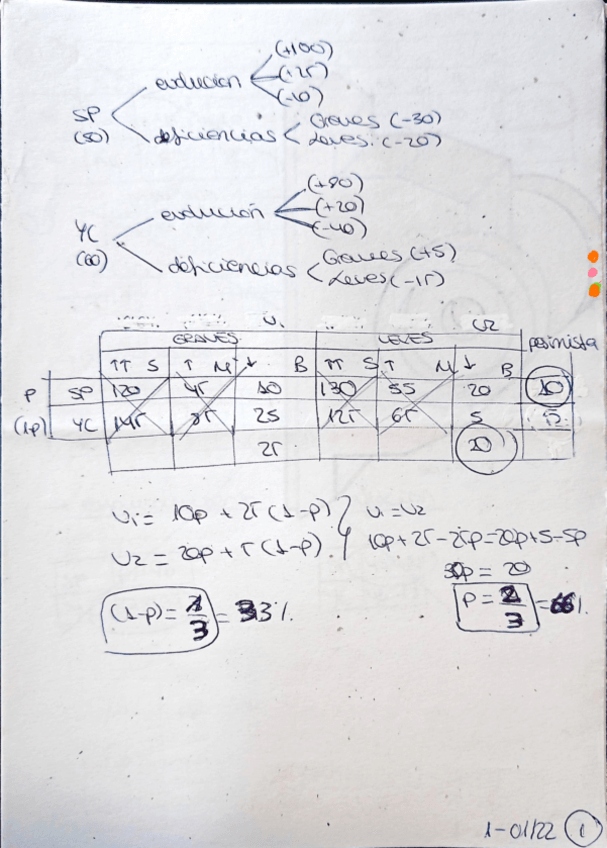 (+100)
evolución (+25)
(-10)
SP
(50)
deficiencias Graves (-30)
Leves (-20)
(+90)
evolución (+20)
(-40)
YC
(60)
deficiencias Graves (+5)
Leves (-15)
U1 U2
GRAVES LEVES pesimista
↑↑ S ↑ M ↓ B ↑↑ S ↑ M ↓ B
P SP 120 45 10 130 55 20 10
(1-p) YC 25 125 65 5
25 20
U1 = 10p + 25(1-p) U1 = U2
U2 = 20p + 5(1-p) 10p + 25 - 25p = 20p + 5 - 5p
30p = 20
(1-p) = 1/3 = 33%. P = 2/3 = 66%.
1-01/22 1